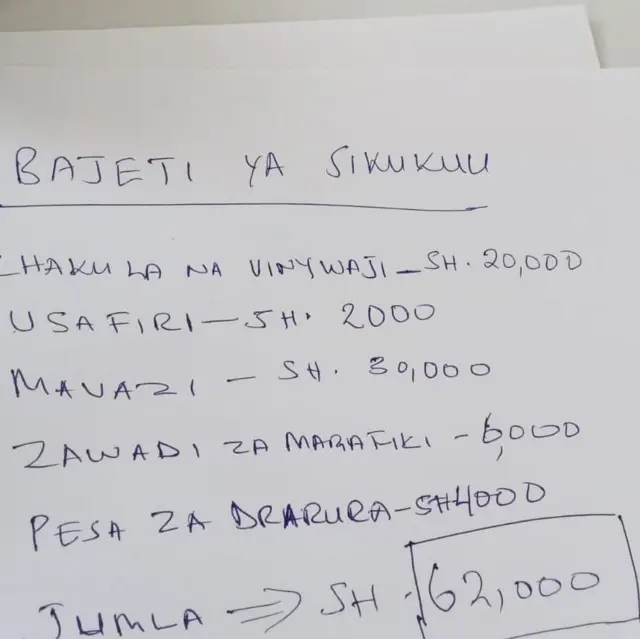 BAJETI YA SIKUKUU
CHAKULA NA VINYWAJI - SH. 20,000
USAFIRI - SH. 2000
MAVAZI - SH. 30,000
ZAWADI ZA MARAFIKI - 6,000
PESA ZA DRARURA - SH 4000
JUMLA ⇒ SH. 62,000